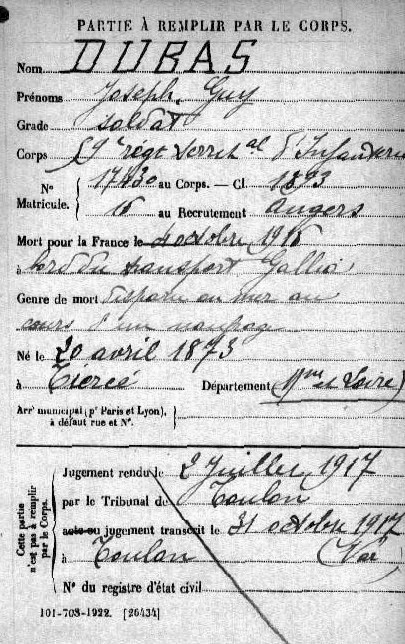 PARTIE À REMPLIR PAR LE CORPS.
Nom DUBAS
Prénoms Joseph, Guy
Grade soldat
Corps 59e régt territal d'Infanterie
Nº 17430 au Corps. — Cl. 1893
Matricule. 16 au Recrutement Angers
Mort pour la France le 4 octobre 1916
à bord du transport Gallia
Genre de mort disparu en mer au
cours d'un naufrage
Né le 20 avril 1873
à Tiercé Département Mne et Loire)
Arrt municipal (pr Paris et Lyon),
à défaut rue et Nº.
Cette partie
n'est pas à remplir
par le Corps.
Jugement rendu le 2 Juillet 1917
par le Tribunal de Toulon
acte ou jugement transcrit le 31 octobre 1917
à Toulon (Var)
Nº du registre d'état civil
101-708-1922. [26434]